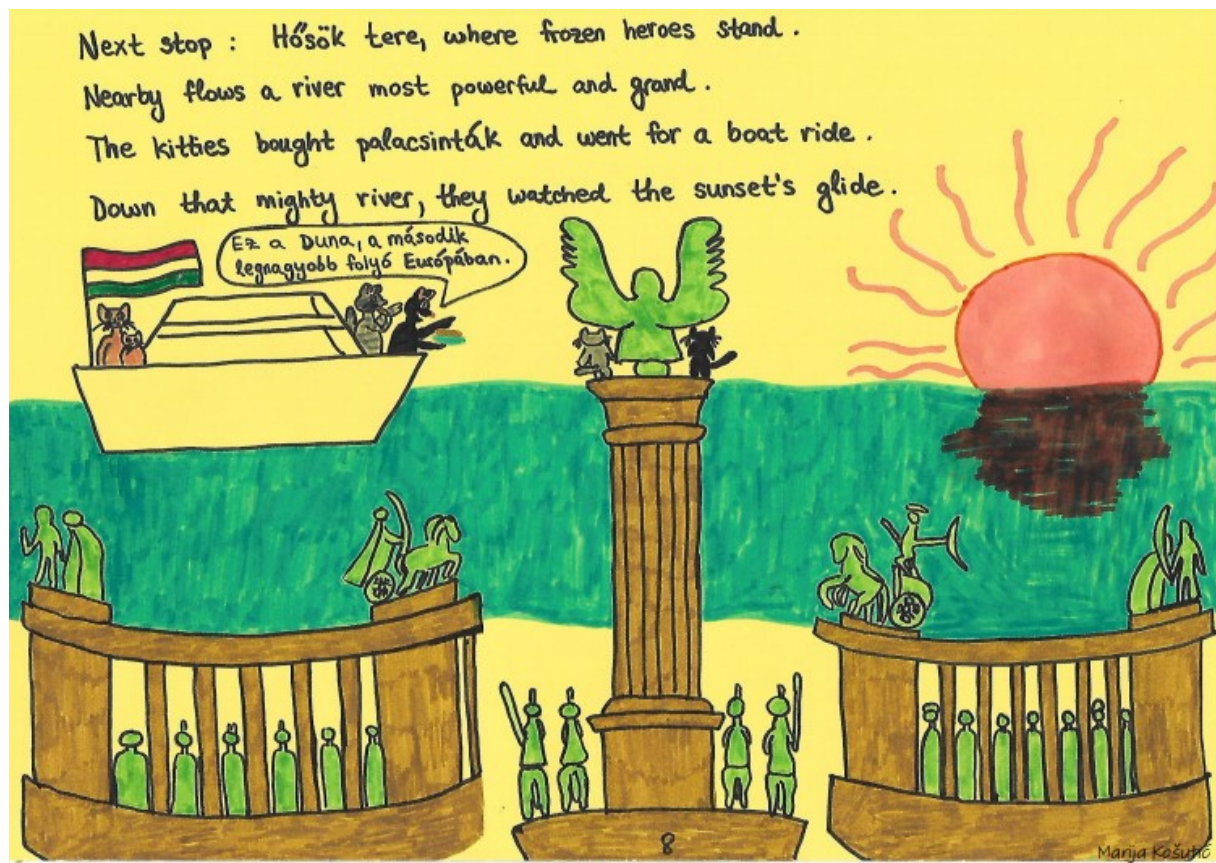 Next stop : Hősök tere, where frozen heroes stand .
Nearby flows a river most powerful and grand .
The kitties bought palacsinták and went for a boat ride .
Down that mighty river, they watched the sunset's glide .
Ez a Duna, a második
legnagyobb folyó Európában.
8
Marija Košutić